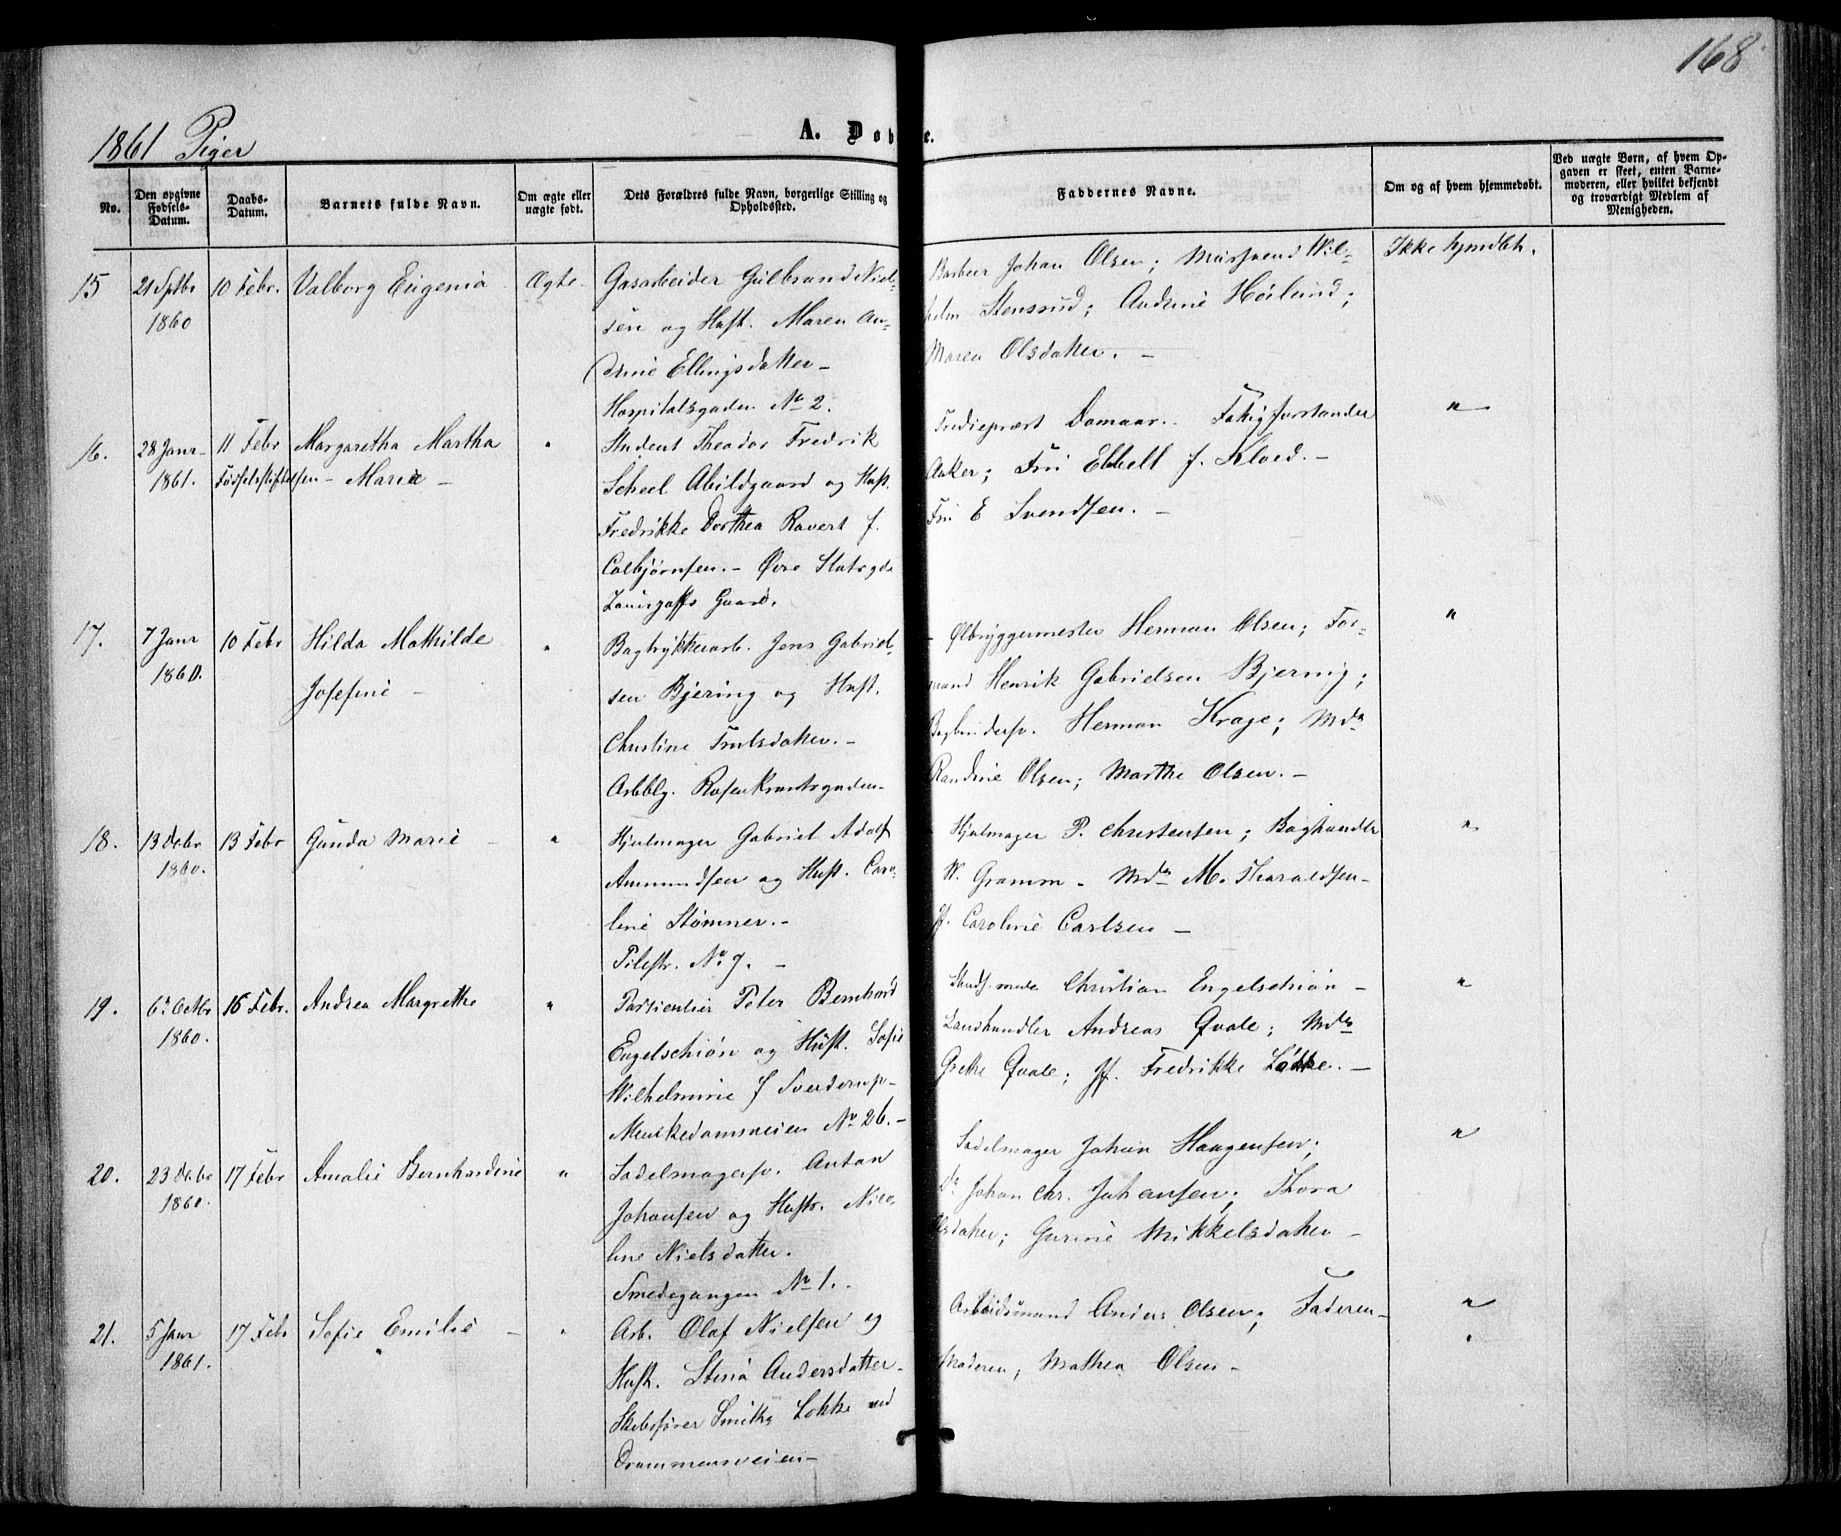 168
1861 Piger
A. Døbte.
No.
Den opgivne Fødsels-Datum.
Daabs-Datum.
Barnets fulde Navn.
Om ægte eller uægte født.
Dets Forældres fulde Navn, borgerlige Stilling og Opholdssted.
Faddernes Navne.
Om og af hvem hjemmedøbt.
Ved uægte Børn, af hvem Opgaven er skeet, enten Barnemoderen, eller hvilket bekjendt og troværdigt Medlem af Menigheden.
15
21 Septbr 1860
10 Febr.
Valborg Eugenia
Ægte
Gasarbeider Gulbrand Niel-
sen og Hust. Maren An-
drine Ellingsdatter
Hospitalsgaden No 2.
Barbeer Johan Olsen; Muursvend Wil-
helm Stensrud; Andrine Høilund;
Maren Olsdatter.
Ikke hjmdbt.
16.
28 Janr 1861.
11 Febr
Fødselsstiftelsen
Margaretha Martha
Marie
"
Student Theodor Fredrik
Scheel Abildgaard og Hust.
Fredrikke Dorthea Ravert f.
Colbjørnsen. Øvre Slotsgde
Gaard.
Domaar. Fattigforstander
Aaker; Fru Ebbell f. Kloed.
Fru E Svendsen.
"
17.
7 Janr 1860.
10 Febr
Hilda Mathilde
Josefine
"
Bogtrykkerarb. Jens Gabriel-
sen Bjering og Hust.
Christine Trulsdatter.
Arbblg. Rosenkrantzgaden
Ølbryggermester Herman Olsen; For-
mand Henrik Gabrielsen Bjering;
Herman Krage; Mda
Randine Olsen; Marthe Olsen.
"
18.
13 Debr 1860.
13 Febr
Gunda Marie
"
Hjulmager Gabriel Adolf
Ammundsen og Hust. Caro-
line Stømner.
Pilestr. No 7.
Hjulmager P. Christensen; Boghandler
W. Gramm. Mda M. Tharaldsen
Jf. Caroline Carlsen
"
19.
6 Octbr 1860.
16 Febr.
Andrea Margrethe
"
Particulier Peter Bernhard
Engelschiøn og Hust. Sofie
Wilhelmine f Sverdrup
Munkedamsveien No 26.
Christian Engelschiøn
Landhandler Andreas Qvale; Mda
Grethe Qvale; Jf. Fredrikke Løkke.
"
20.
23 Debr 1860.
17 Febr
Amalie Bernhardine
"
Sadelmagersv. Anton
Johansen og Hustr. Nico-
line Nielsdatter.
Smedegangen No 1.
Sadelmager Johan Haagensen;
Do Johan Chr. Johansen; Thora
Olsdatter; Gurine Mikkelsdatter
"
21.
5 Janr 1861.
17 Febr
Sofie Emilie
"
Arb. Olaf Nielsen og
Hust. Stina Andersdatter
Skibsfører Smiths Løkke ved
Drammensveien
Arbeidsmand Anders Olsen; Faderen
Moderen; Mathea Olsen
"